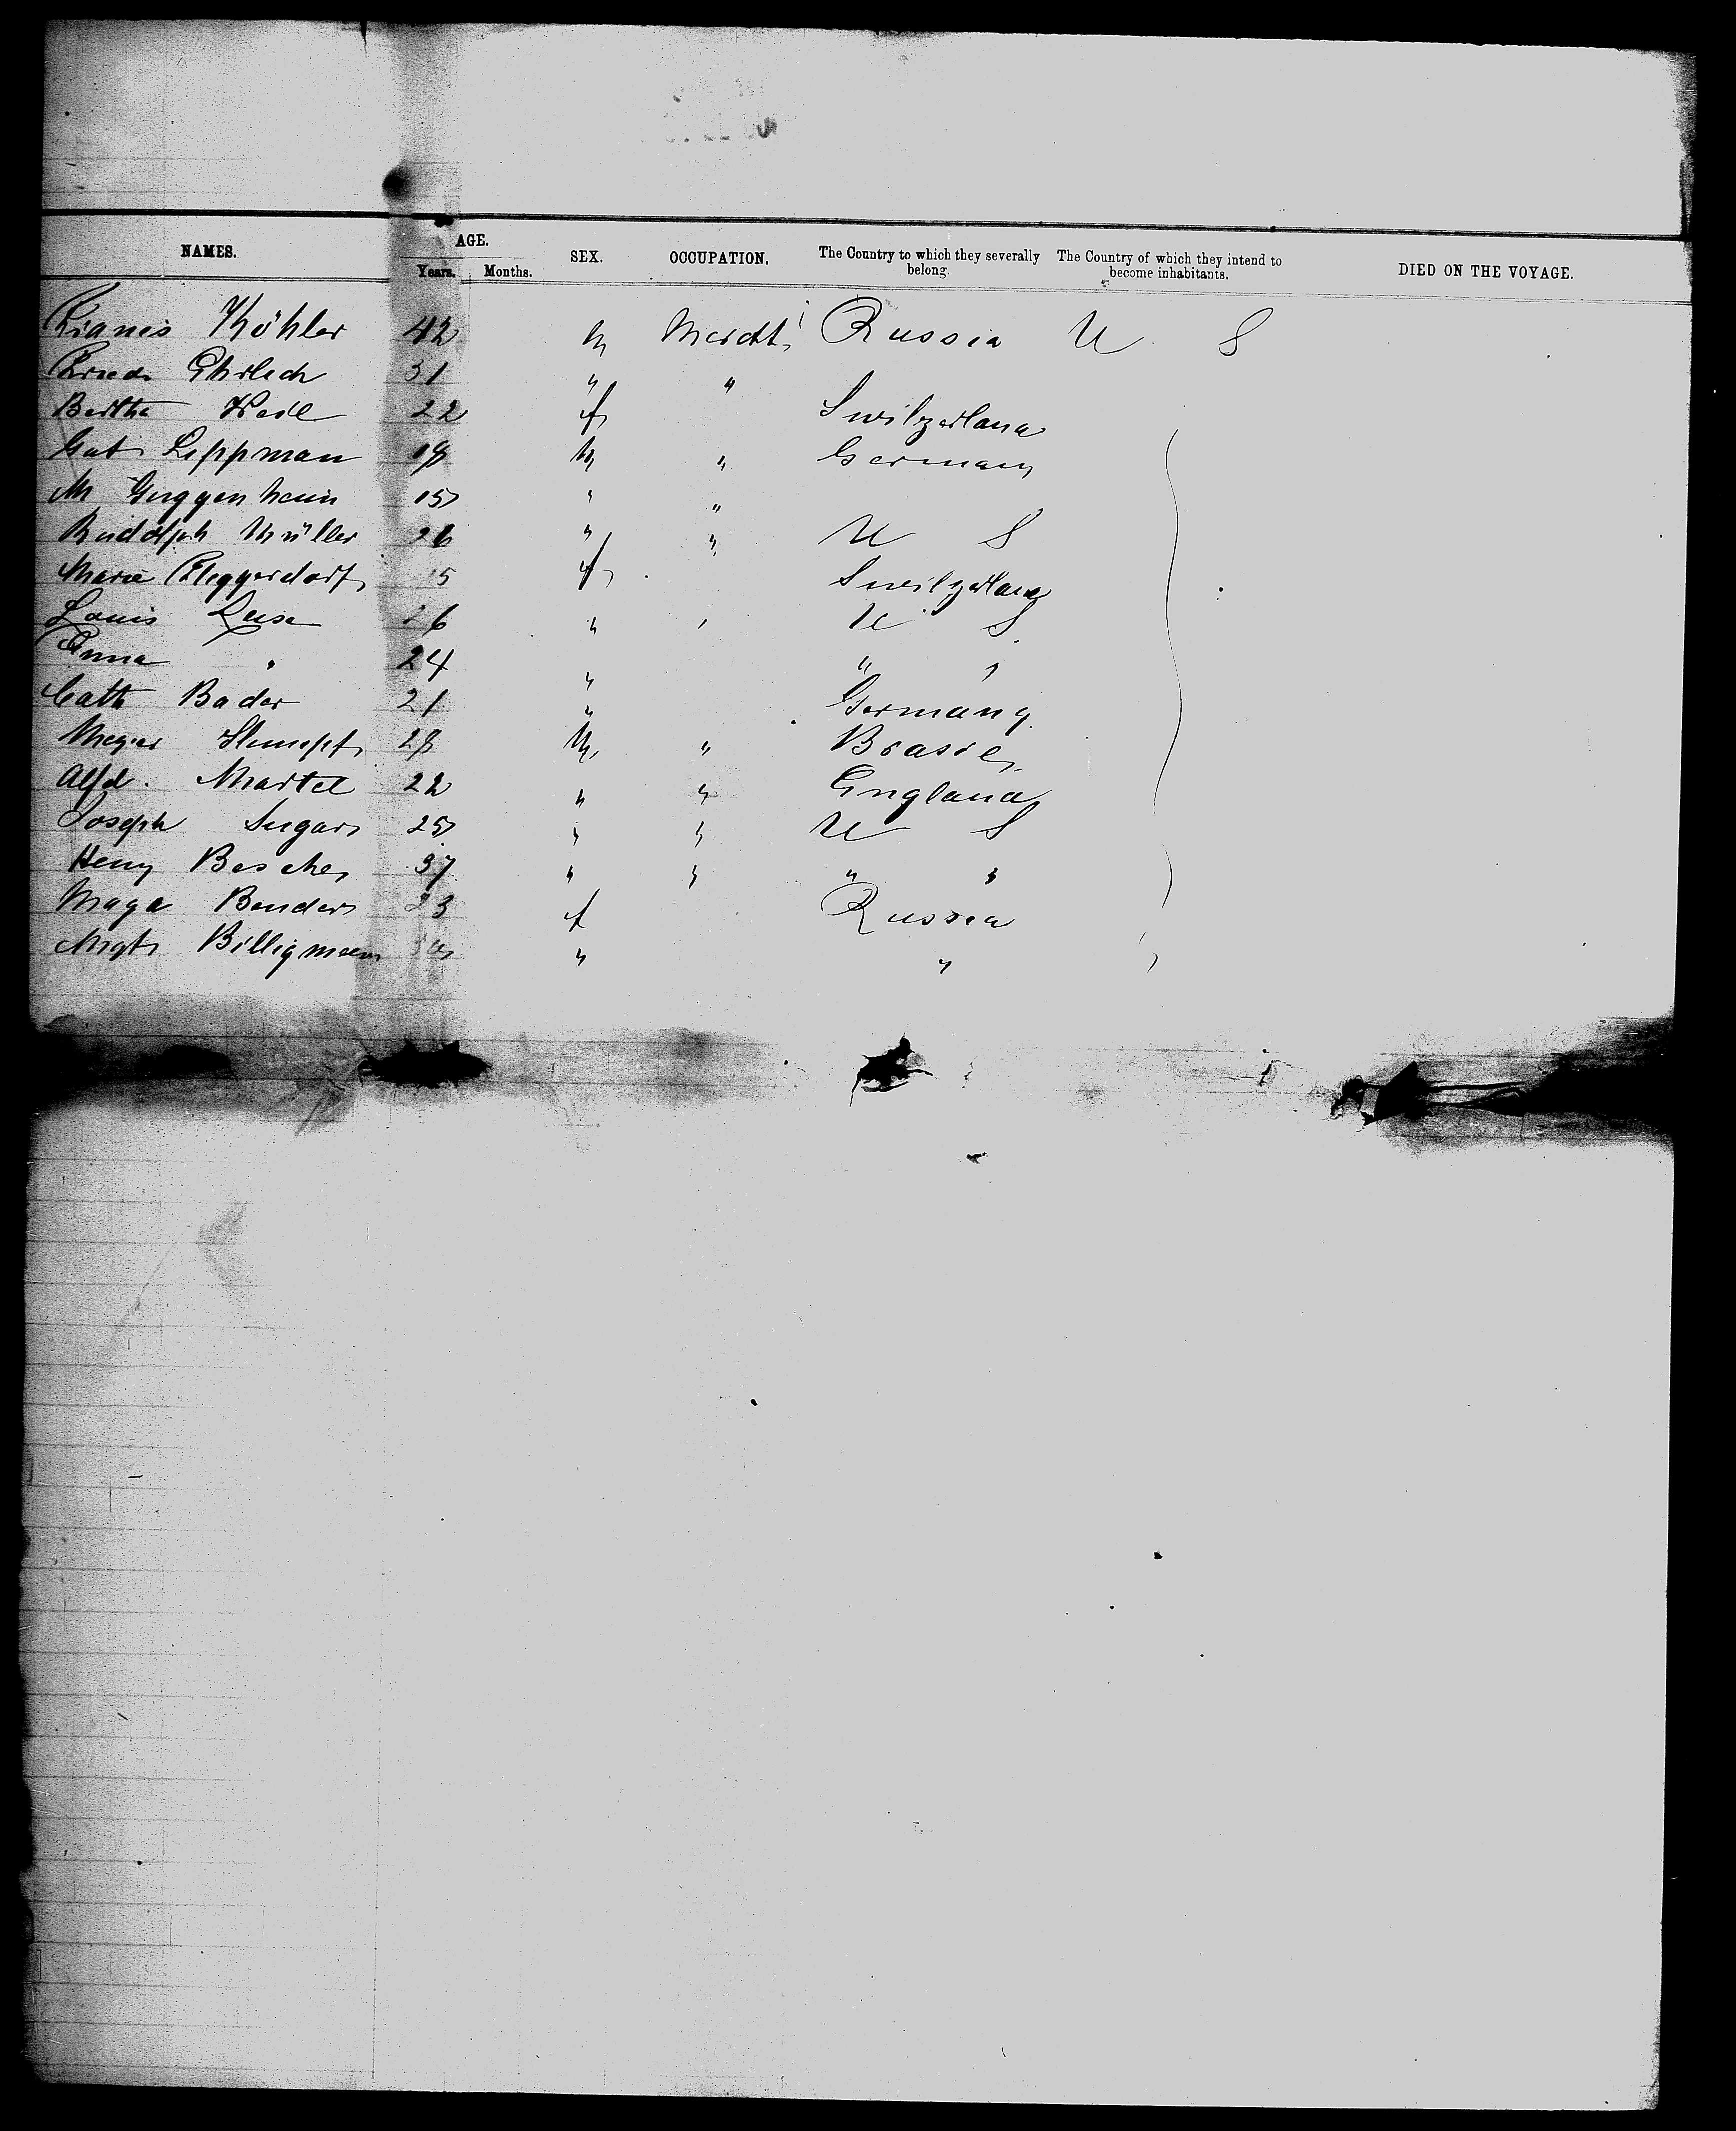 NAMES. AGE. Years. Months. SEX. OCCUPATION. The Country to which they severally belong. The Country of which they intend to become inhabitants. DIED ON THE VOYAGE.
Köhler 42 m Mercht Russia U S
31 " "
Bertha 22 f Switzerland
Lippman 18 m " Germany
M Guggenheim 15 " "
Rudolph Müller 26 " " U S
Marie 15 f Switzerland
Louis 26 " " U S
Anna " 24 " " "
Cath Bader 21 " Germany
Meyer 28 m " Brasil
Alfd. Martel 22 " " England
Joseph Sugar 25 " " U S
Henry 37 " " " "
Maga Bender 23 f Russia
Mgt Billigmann " "